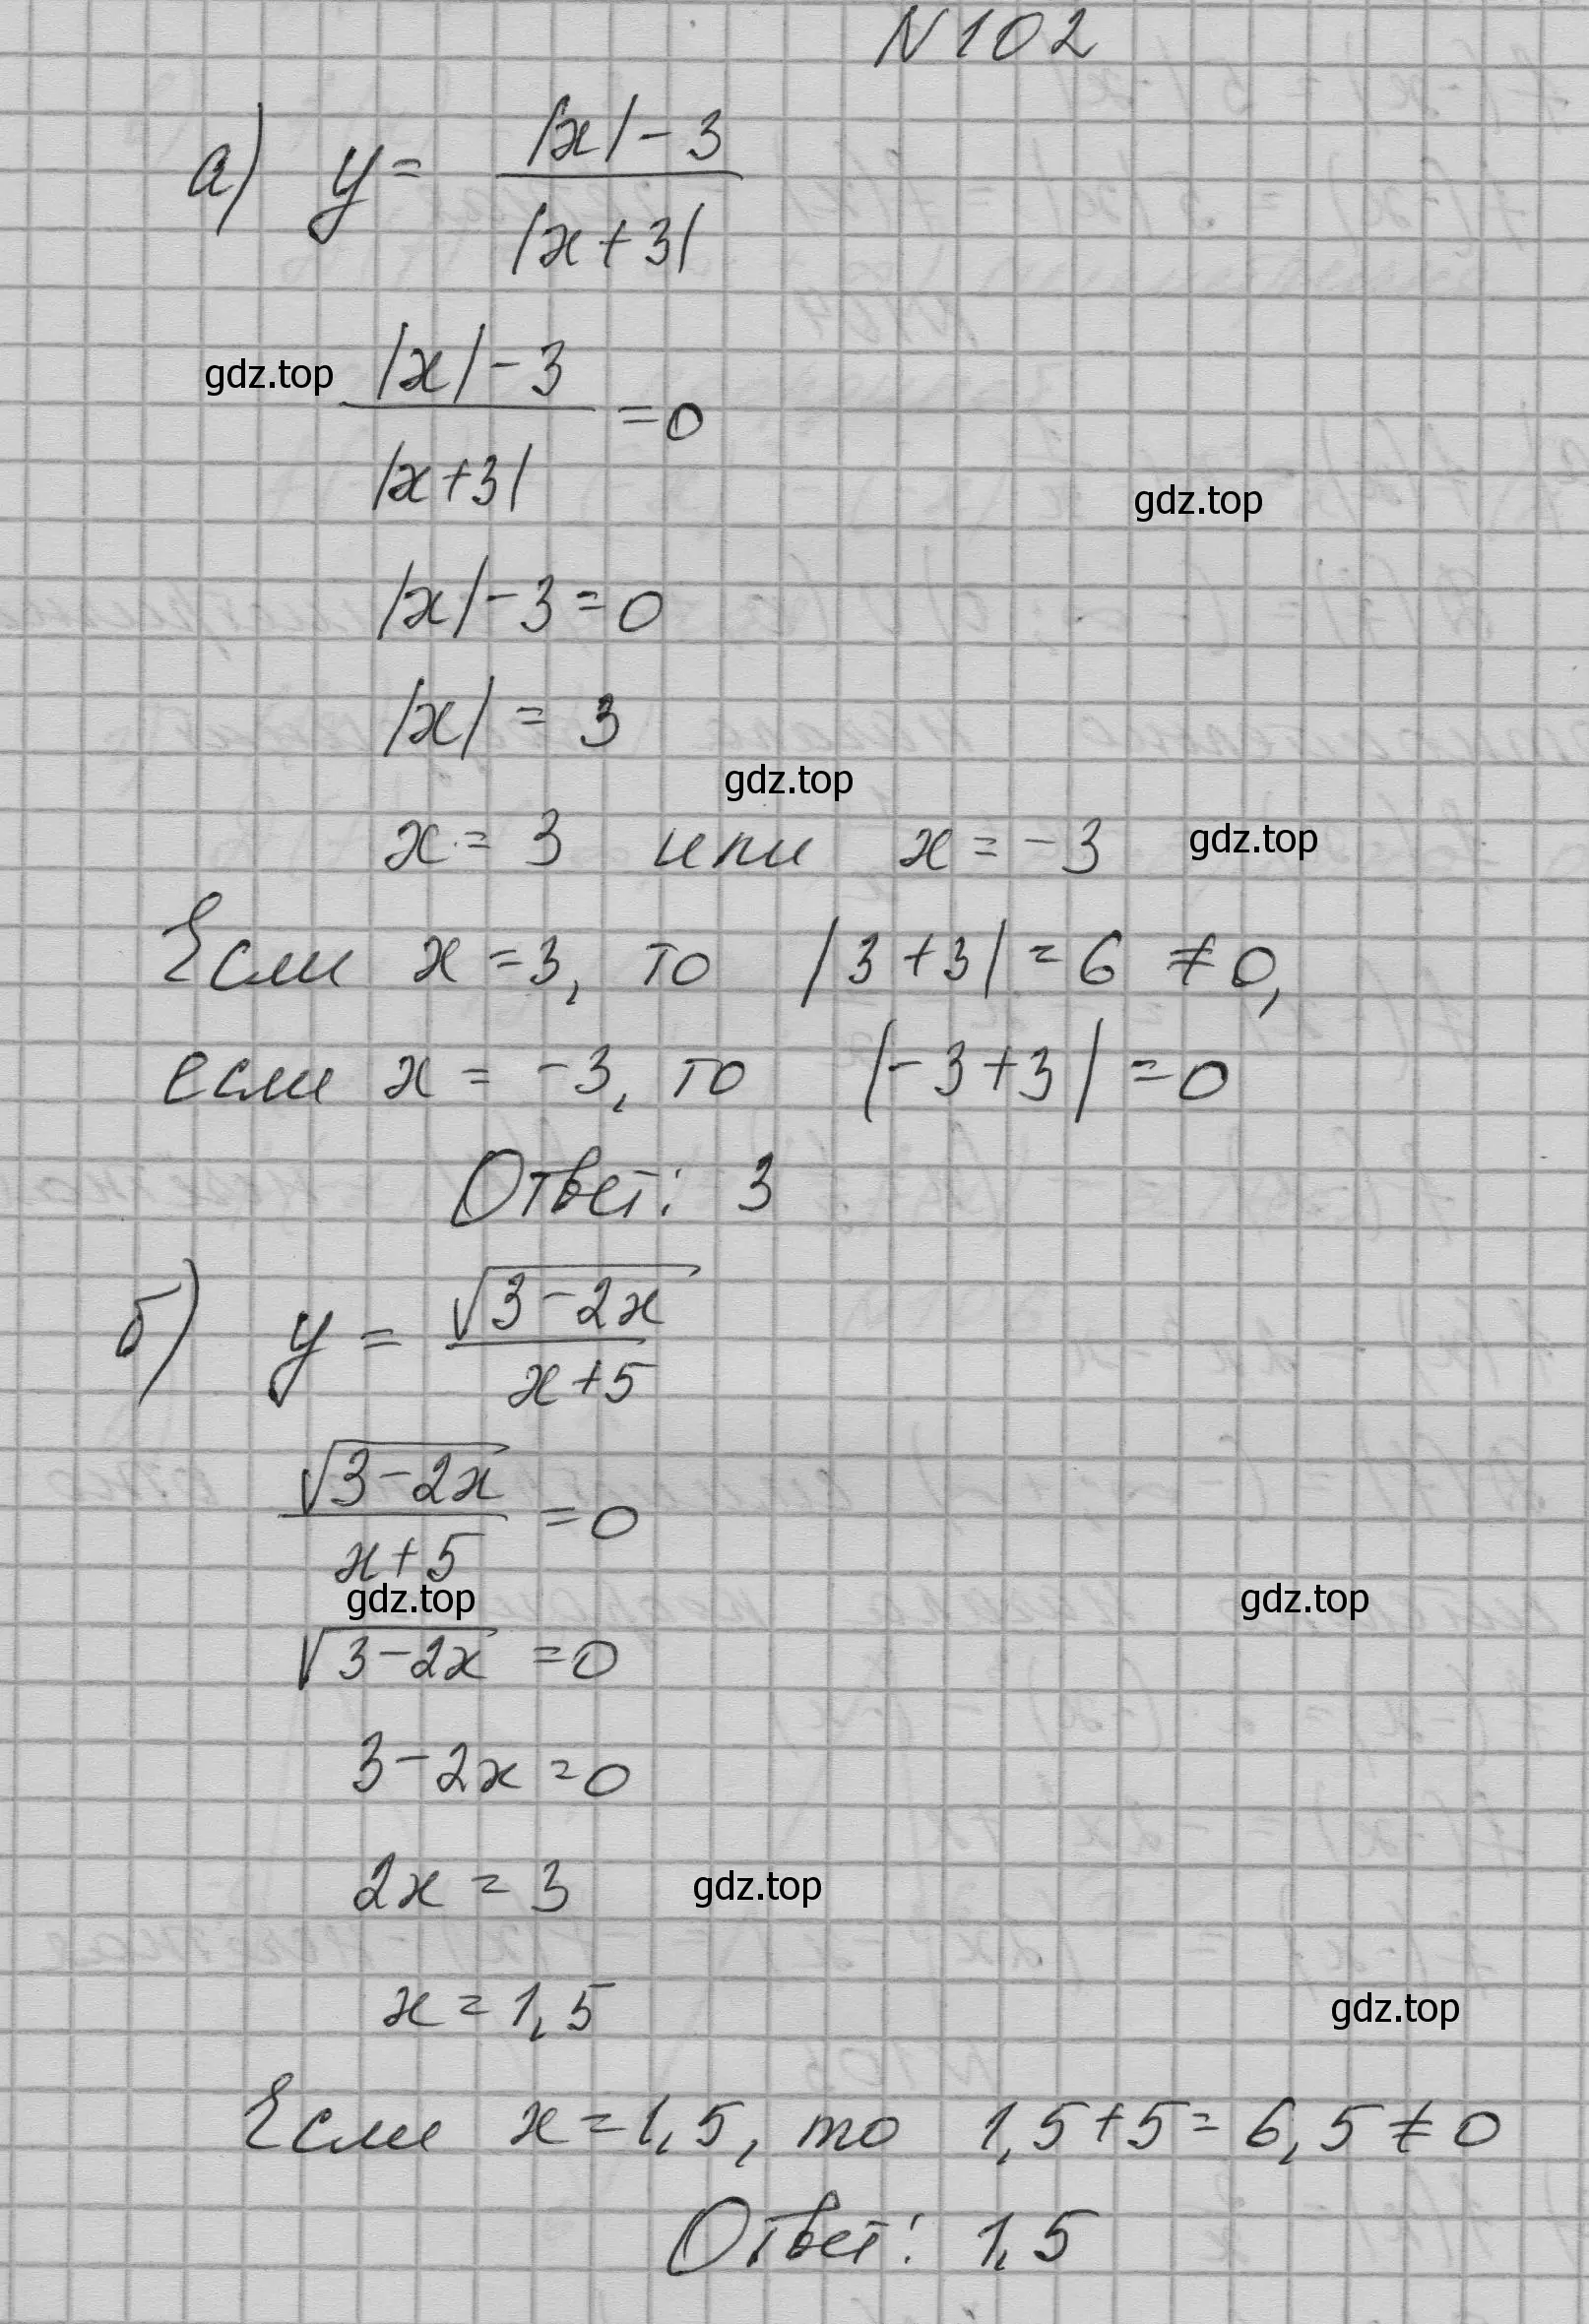 N 102
а) y = |x| - 3 / |x + 3|
gdz.top |x| - 3 / |x + 3| = 0
gdz.top
|x| - 3 = 0
|x| = 3
gdz.top
x = 3 или x = -3 gdz.top
Если x = 3, то |3 + 3| = 6 ≠ 0,
если x = -3, то |-3 + 3| = 0
Ответ: 3
б) y = √(3 - 2x) / x + 5
√(3 - 2x) / x + 5 = 0
gdz.top gdz.top
√(3 - 2x) = 0
3 - 2x = 0
2x = 3 gdz.top
x = 1,5
gdz.top
Если x = 1,5, то 1,5 + 5 = 6,5 ≠ 0
Ответ: 1,5